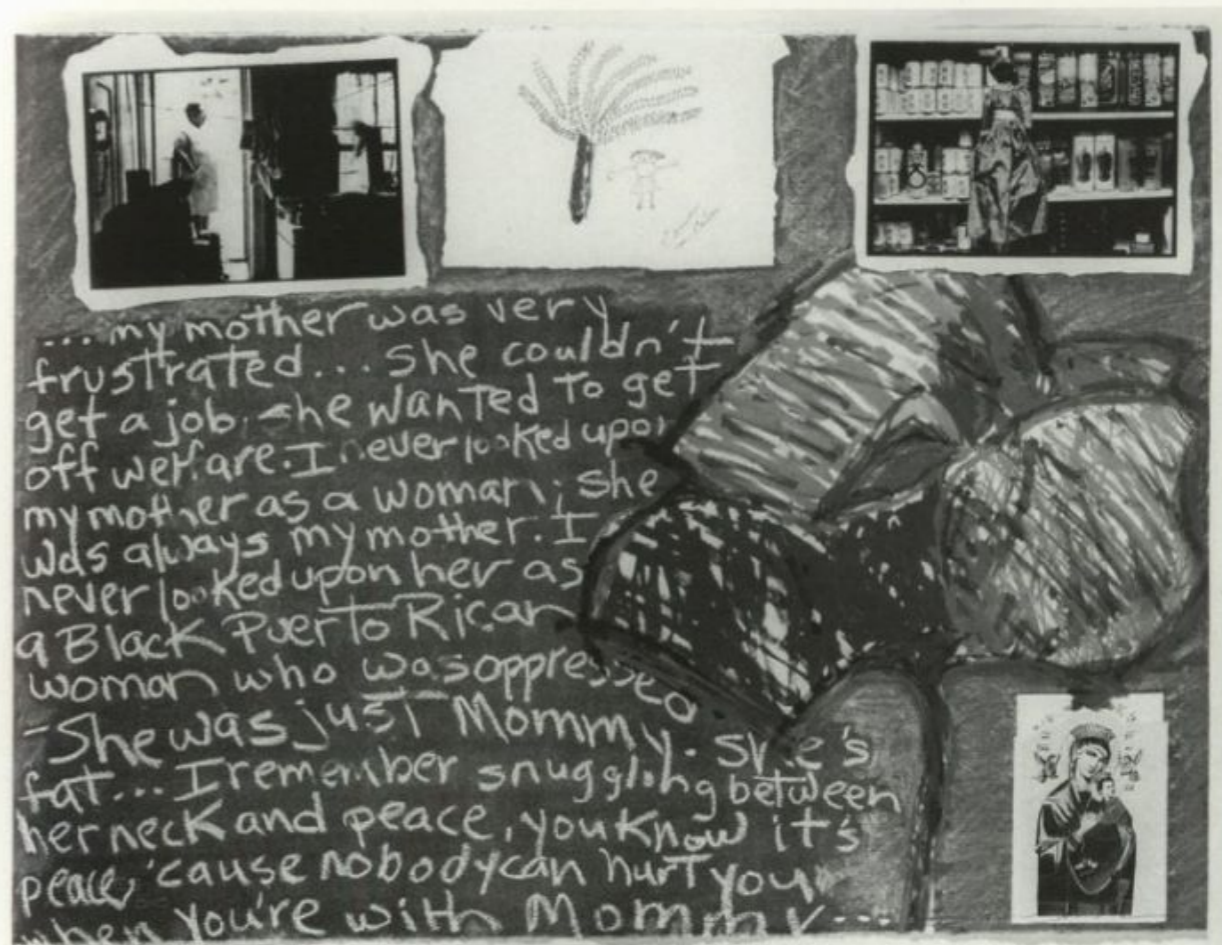 ... my mother was very
frustrated... she couldn't
get a job, she wanted to get
off welfare. I never looked upon
my mother as a woman; she
was always my mother. I
never looked upon her as
a Black Puerto Rican
woman who was oppressed
- She was just Mommy. She's
fat... I remember snuggling between
her neck and peace, you know it's
peace, 'cause nobody can hurt you
when you're with Mommy...